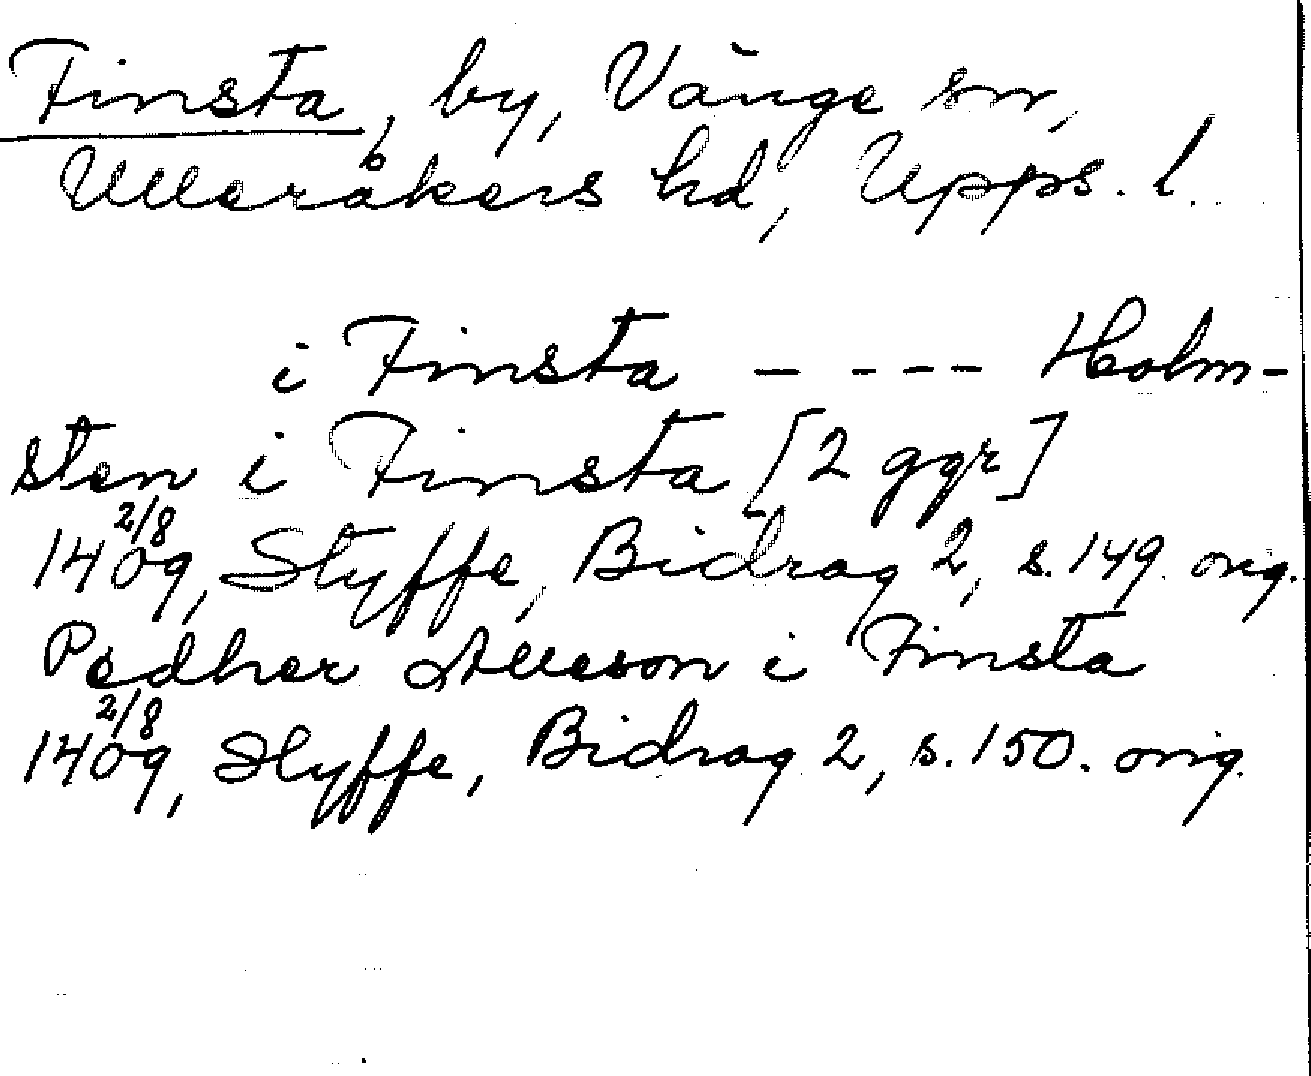 Finsta, by, Vänge sn,
Ulleråkers hd, Upps. l.
i Finsta - - - - Holm-
sten i Finsta [2 ggr]
1409 2/8, Styffe, Bidrag 2, s. 149. orig.
Pedher Alleson i Finsta
1409 2/8, Styffe, Bidrag 2, s. 150. orig.